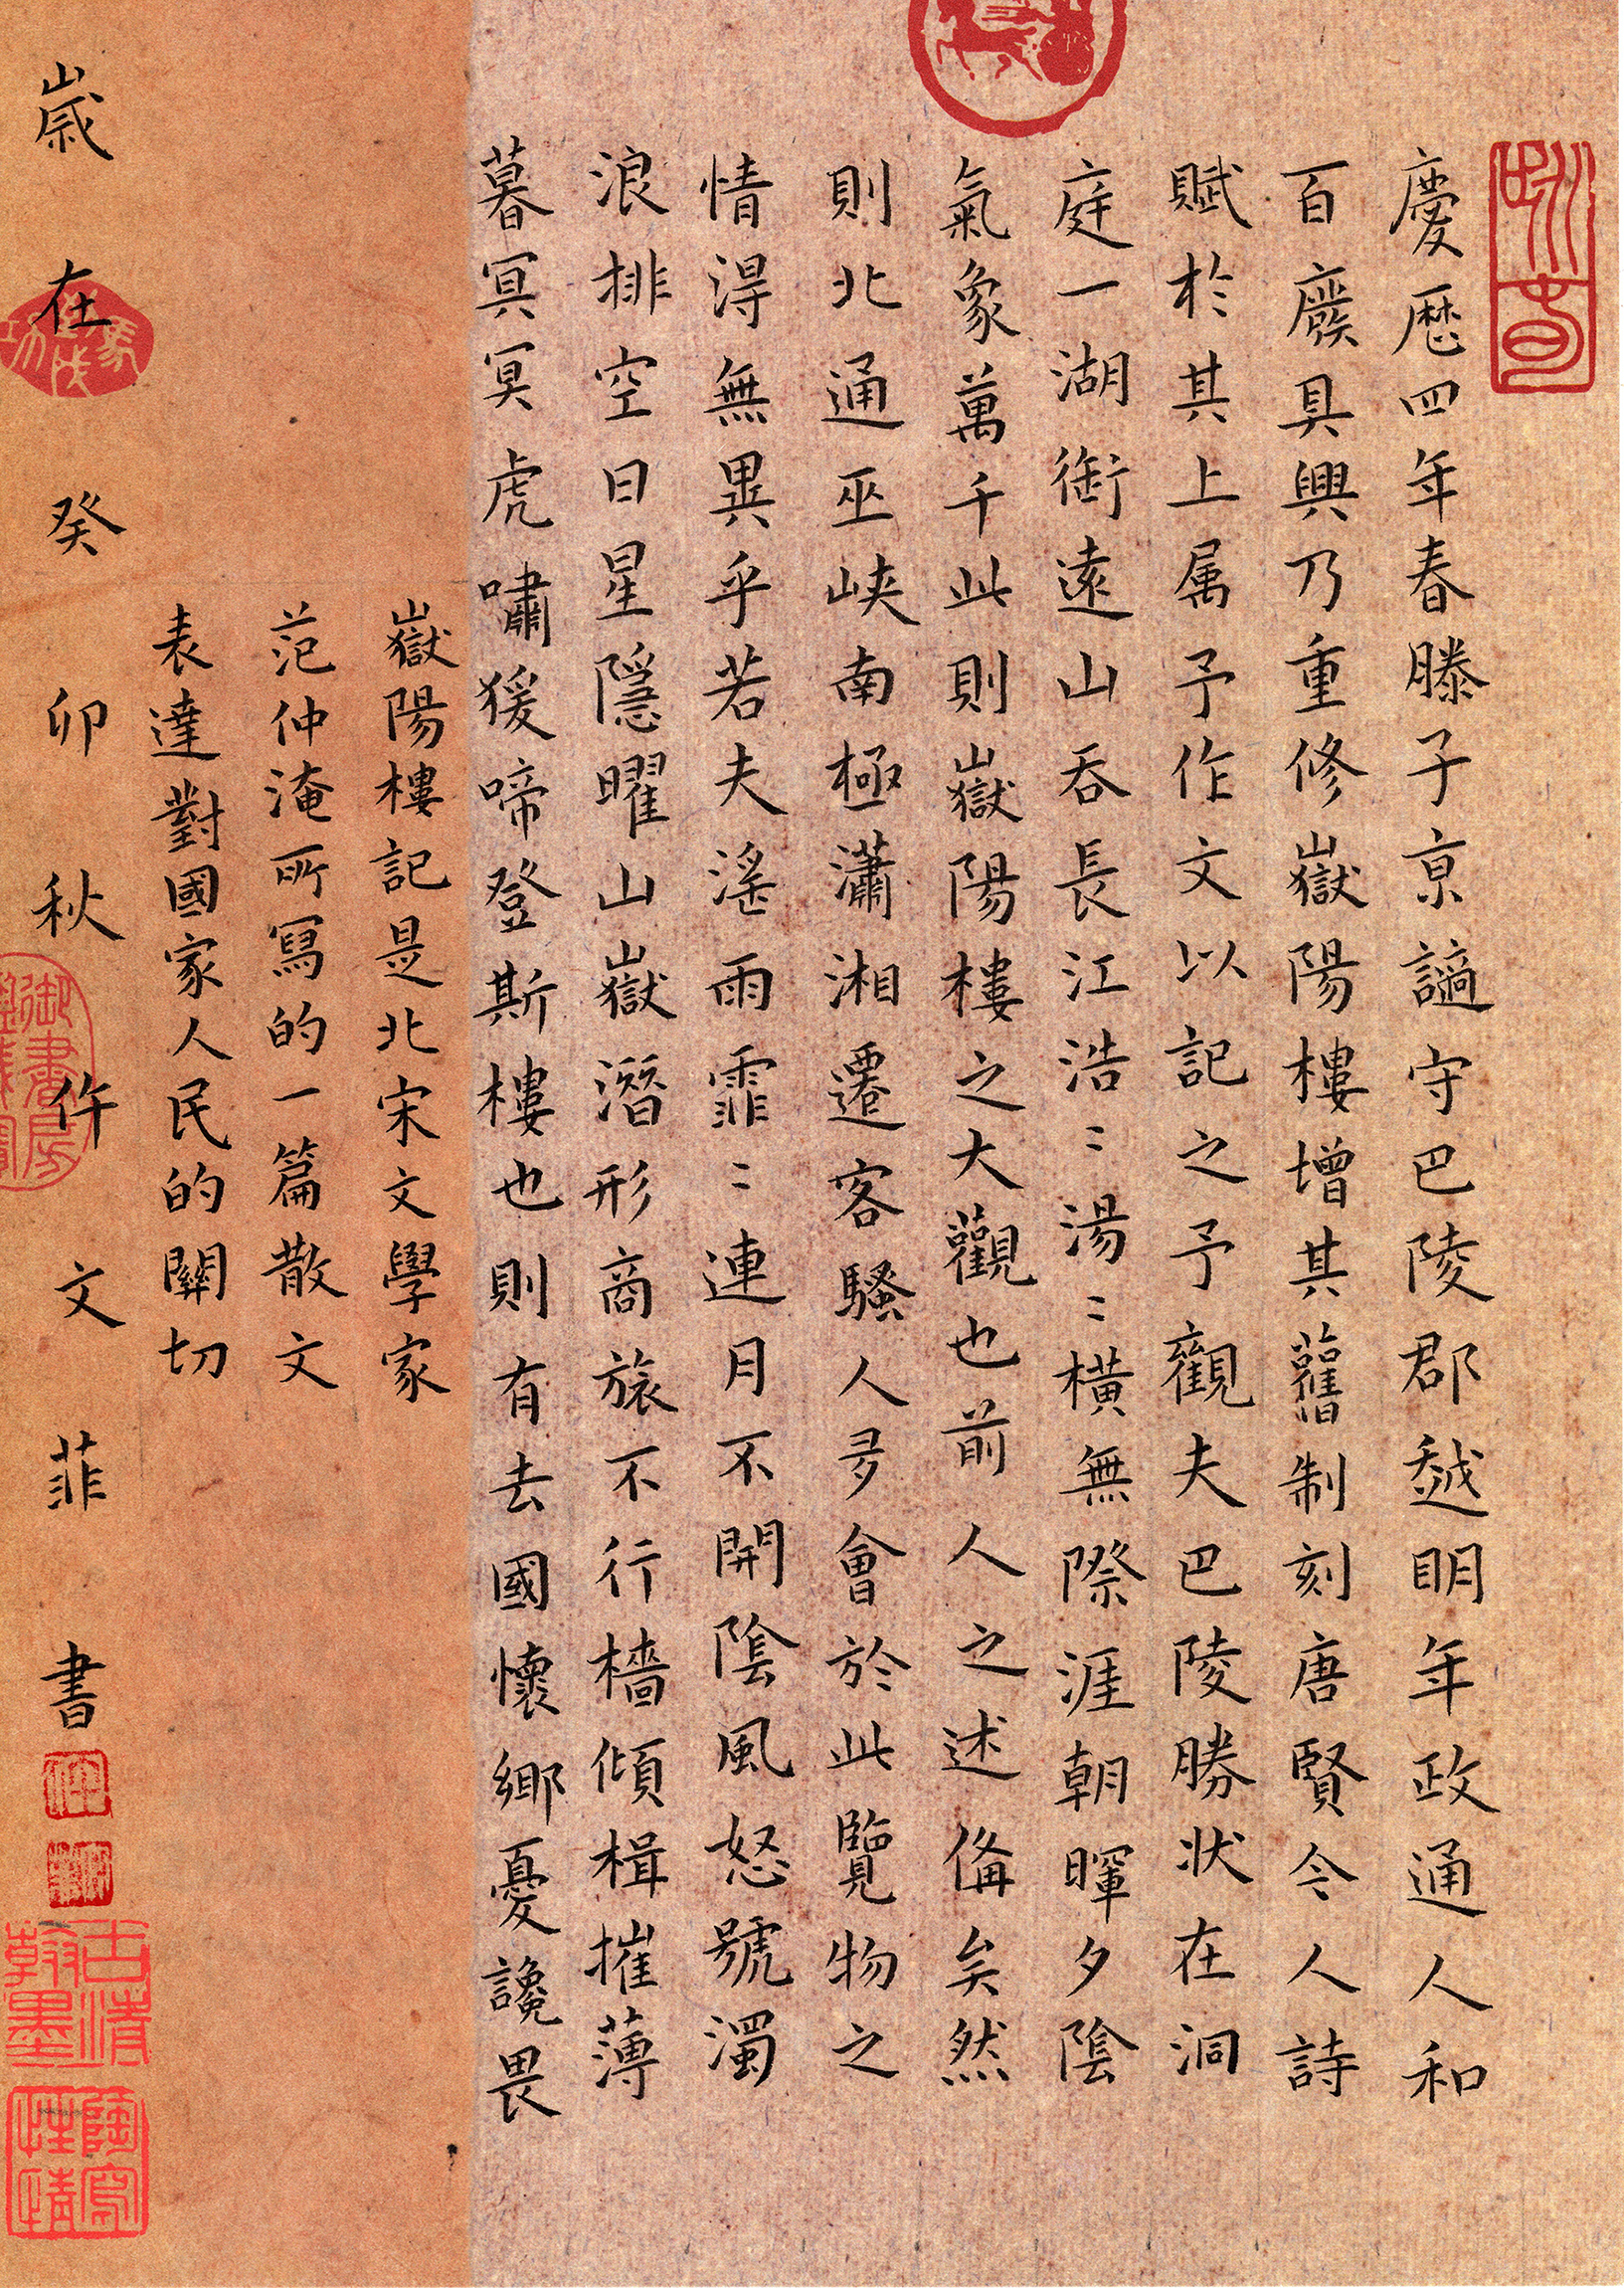 慶歷四年春滕子京謫守巴陵郡越明年政通人和
百廢具興乃重修嶽陽樓增其舊制刻唐賢今人詩
賦於其上属予作文以記之予觀夫巴陵勝狀在洞
庭一湖銜遠山吞長江浩〻湯〻橫無際涯朝暉夕陰
氣象萬千此則嶽陽樓之大觀也前人之述俻矣然
則北通巫峽南極瀟湘遷客騷人多會於此覽物之
情得無異乎若夫滛雨霏〻連月不開陰風怒號濁
浪排空日星隱曜山嶽潛形商旅不行檣傾楫摧薄
暮冥冥虎嘯猨啼登斯樓也則有去國懷鄉憂讒畏
嶽陽樓記是北宋文學家
范仲淹所寫的一篇散文
表達對國家人民的關切
歲在癸卯秋仵文菲書
御書房
古清
翰墨
陶寫
性情